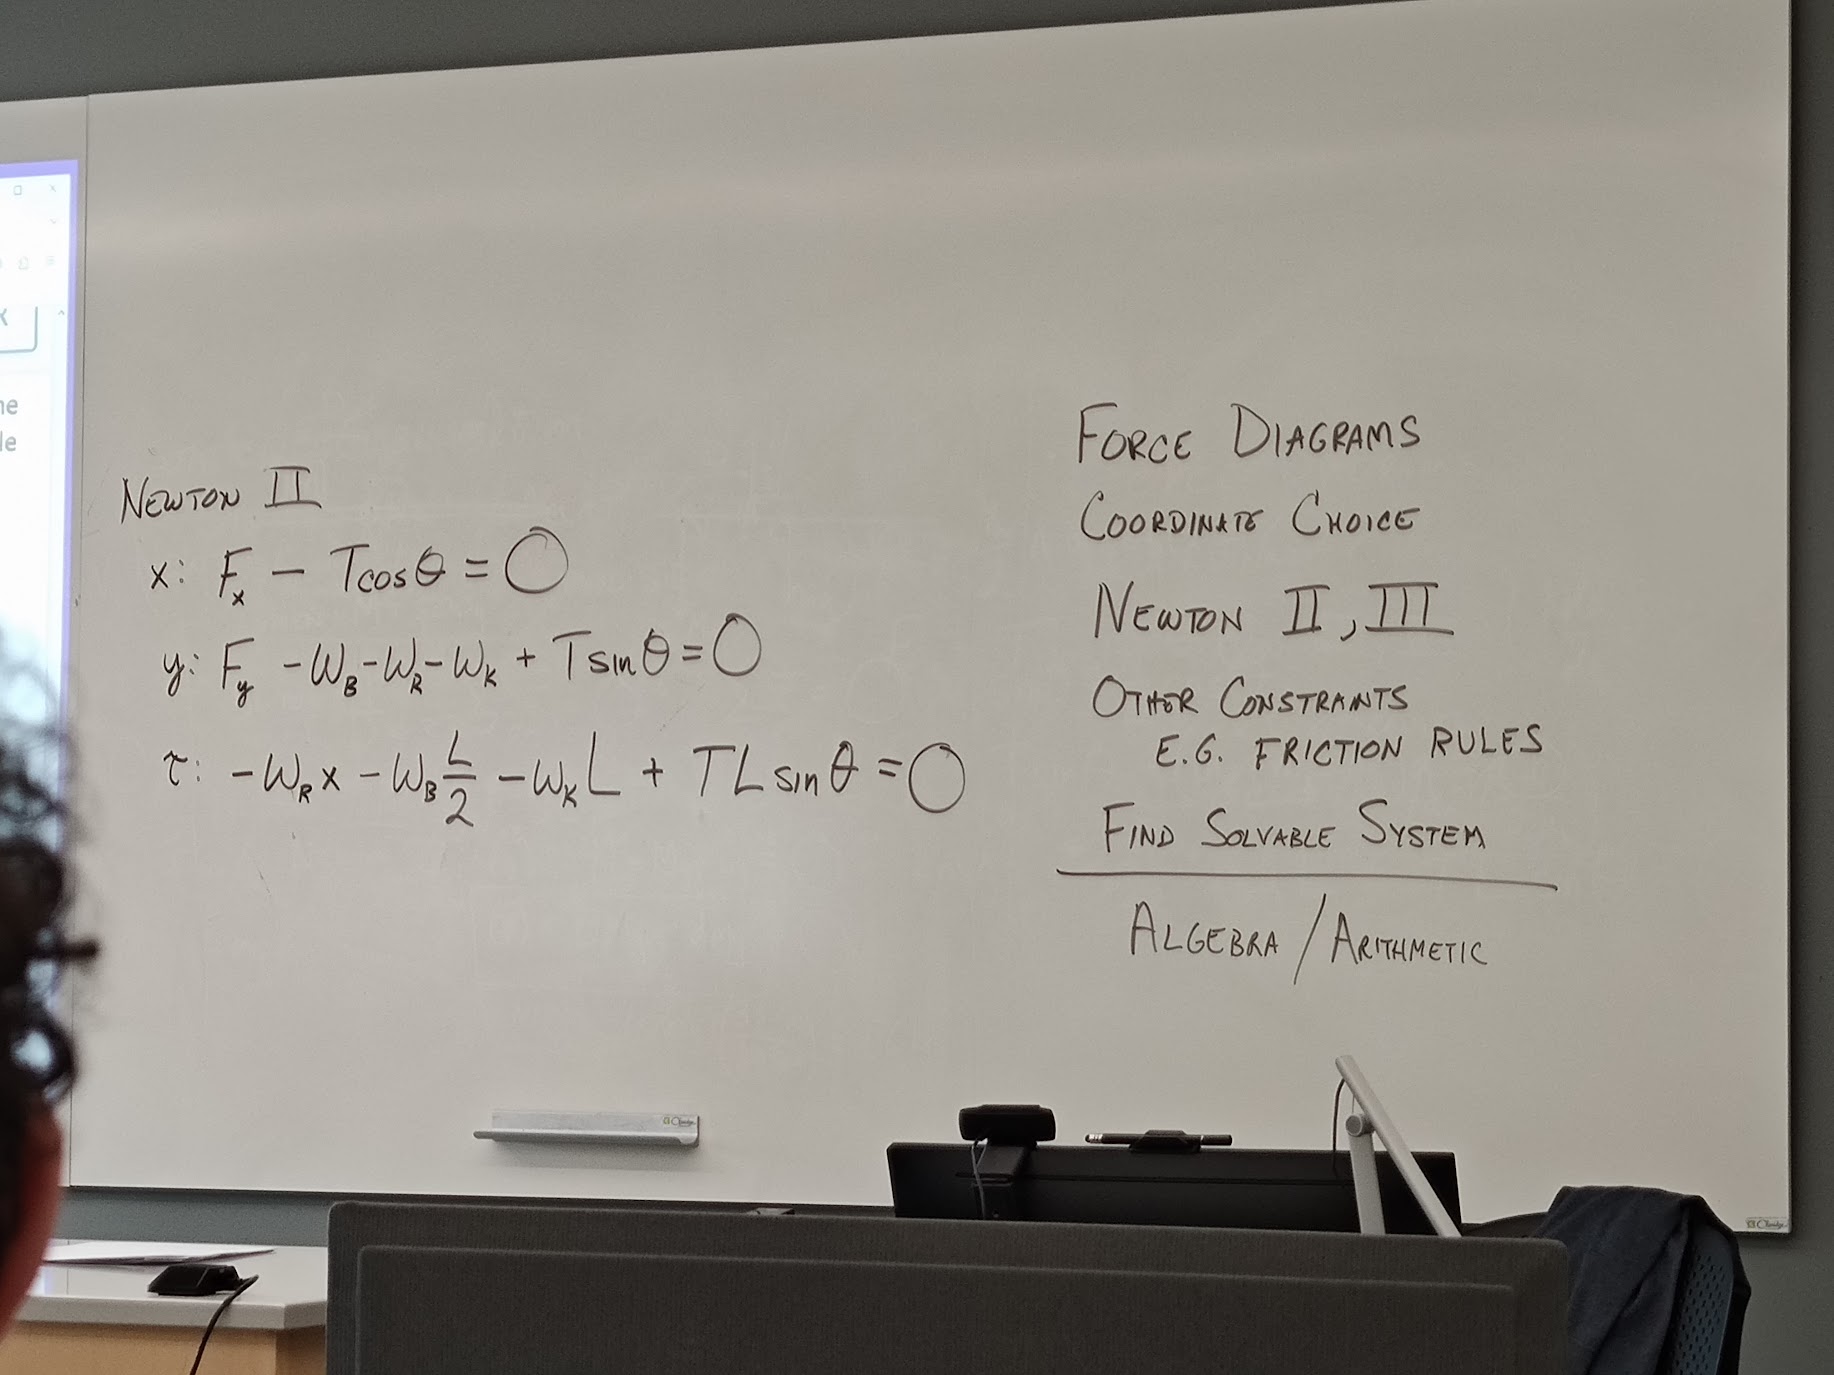 NEWTON II
x: Fₓ - Tcosθ = 0
y: F_y - W_B - W_R - W_K + Tsinθ = 0
τ: -W_R x - W_B L/2 - W_K L + TL sinθ = 0
FORCE DIAGRAMS
COORDINATE CHOICE
NEWTON II, III
OTHER CONSTRAINTS
E.G. FRICTION RULES
FIND SOLVABLE SYSTEM
ALGEBRA / ARITHMETIC